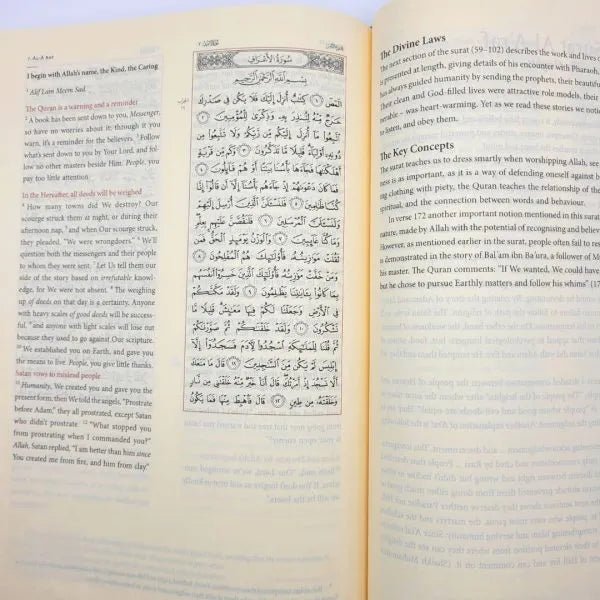 I begin with Allah's name, the Kind, the Caring
1 Alif Lam Meem Sad.
The Quran is a warning and a reminder
2 A book has been sent down to you, Messenger,
so have no worries about it; through it you
warn, it's a reminder for the believers. 3 Follow
what's sent down to you by your Lord, and fol-
low no other masters beside Him. People, you
pay too little attention.
In the Hereafter, all deeds will be weighed
4 How many towns did We destroy? Our
scourge struck them at night, or during their
afternoon nap, 5 and when Our scourge struck,
they pleaded, "We were wrongdoers." 6 We'll
question both the messengers and their people
to whom they were sent. 7 Let Us tell them our
side of the story based on irrefutable knowl-
edge, for We were not absent. 8 The weighing
up of deeds on that day is a certainty. Anyone
with heavy scales of good deeds will be success-
ful, 9 and anyone with light scales will lose out
because they used to go against Our scripture.
10 We established you on Earth, and gave you
the means to live. People, you give little thanks.
Satan vows to mislead people
11 Humanity, We created you and gave you the
present form, then We told the angels, "Prostrate
before Adam," they all prostrated, except Satan
who didn't prostrate. 12 "What stopped you
from prostrating when I commanded you?"
Allah, Satan replied, "I am better than him since
You created me from fire, and him from clay"
سُورَةُ الأَعْرَافِ
بِسْمِ اللَّهِ الرَّحْمَٰنِ الرَّحِيمِ
الٓمٓصٓ ١ كِتَٰبٌ أُنزِلَ إِلَيْكَ فَلَا يَكُن فِي صَدْرِكَ
حَرَجٌ مِّنْهُ لِتُنذِرَ بِهِۦ وَذِكْرَىٰ لِلْمُؤْمِنِينَ ٢
ٱتَّبِعُوا۟ مَآ أُنزِلَ إِلَيْكُم مِّن رَّبِّكُمْ وَلَا تَتَّبِعُوا۟ مِن
دُونِهِۦٓ أَوْلِيَآءَ قَلِيلًا مَّا تَذَكَّرُونَ ٣ وَكَم مِّن قَرْيَةٍ
أَهْلَكْنَٰهَا فَجَآءَهَا بَأْسُنَا بَيَٰتًا أَوْ هُمْ قَآئِلُونَ ٤
فَمَا كَانَ دَعْوَىٰهُمْ إِذْ جَآءَهُم بَأْسُنَآ إِلَّآ أَن قَالُوٓا۟ إِنَّا
كُنَّا ظَٰلِمِينَ ٥ فَلَنَسْـَٔلَنَّ ٱلَّذِينَ أُرْسِلَ إِلَيْهِمْ
وَلَنَسْـَٔلَنَّ ٱلْمُرْسَلِينَ ٦ فَلَنَقُصَّنَّ عَلَيْهِم بِعِلْمٍ
وَمَا كُنَّا غَآئِبِينَ ٧ وَٱلْوَزْنُ يَوْمَئِذٍ ٱلْحَقُّ فَمَن
ثَقُلَتْ مَوَٰزِينُهُۥ فَأُو۟لَٰٓئِكَ هُمُ ٱلْمُفْلِحُونَ ٨
وَمَنْ خَفَّتْ مَوَٰزِينُهُۥ فَأُو۟لَٰٓئِكَ ٱلَّذِينَ خَسِرُوٓا۟ أَنفُسَهُم
بِمَا كَانُوا۟ بِـَٔايَٰتِنَا يَظْلِمُونَ ٩ وَلَقَدْ مَكَّنَّٰكُمْ
فِي ٱلْأَرْضِ وَجَعَلْنَا لَكُمْ فِيهَا مَعَٰيِشَ قَلِيلًا مَّا
تَشْكُرُونَ ١٠ وَلَقَدْ خَلَقْنَٰكُمْ ثُمَّ صَوَّرْنَٰكُمْ
ثُمَّ قُلْنَا لِلْمَلَٰٓئِكَةِ ٱسْجُدُوا۟ لِـَٔادَمَ فَسَجَدُوٓا۟ إِلَّآ
إِبْلِيسَ لَمْ يَكُن مِّنَ ٱلسَّٰجِدِينَ ١١ قَالَ مَا مَنَعَكَ
أَلَّا تَسْجُدَ إِذْ أَمَرْتُكَ قَالَ أَنَا۠ خَيْرٌ مِّنْهُ خَلَقْتَنِي مِن نَّارٍ
وَخَلَقْتَهُۥ مِن طِينٍ ١٢ قَالَ فَٱهْبِطْ مِنْهَا فَمَا يَكُونُ
The Divine Laws
The next section of the surat (59–102) describes the work and lives of
presented at length, giving details of his encounter with Pharaoh,
has always guided humanity by sending the prophets, their beautiful
Their clean and God-filled lives were attractive role models, their
– was heart-warming. Yet as we read these stories we notice
to listen, and obey them.
The Key Concepts
The surat teaches us to dress smartly when worshipping Allah, see
ness is as important, as it is a way of defending oneself against
ing clothing with piety, the Quran teaches the relationship of the
spiritual, and the connection between words and behaviour.
In verse 172 another important notion mentioned in this surat
nature, made by Allah with the potential of recognising and believing
However, as mentioned earlier in the surat, people often fail to
is demonstrated in the story of Bal'am ibn Ba'ura, a follower of
his master. The Quran comments: "If We wanted, We could have
but he chose to pursue Earthly matters and follow his whims" (17